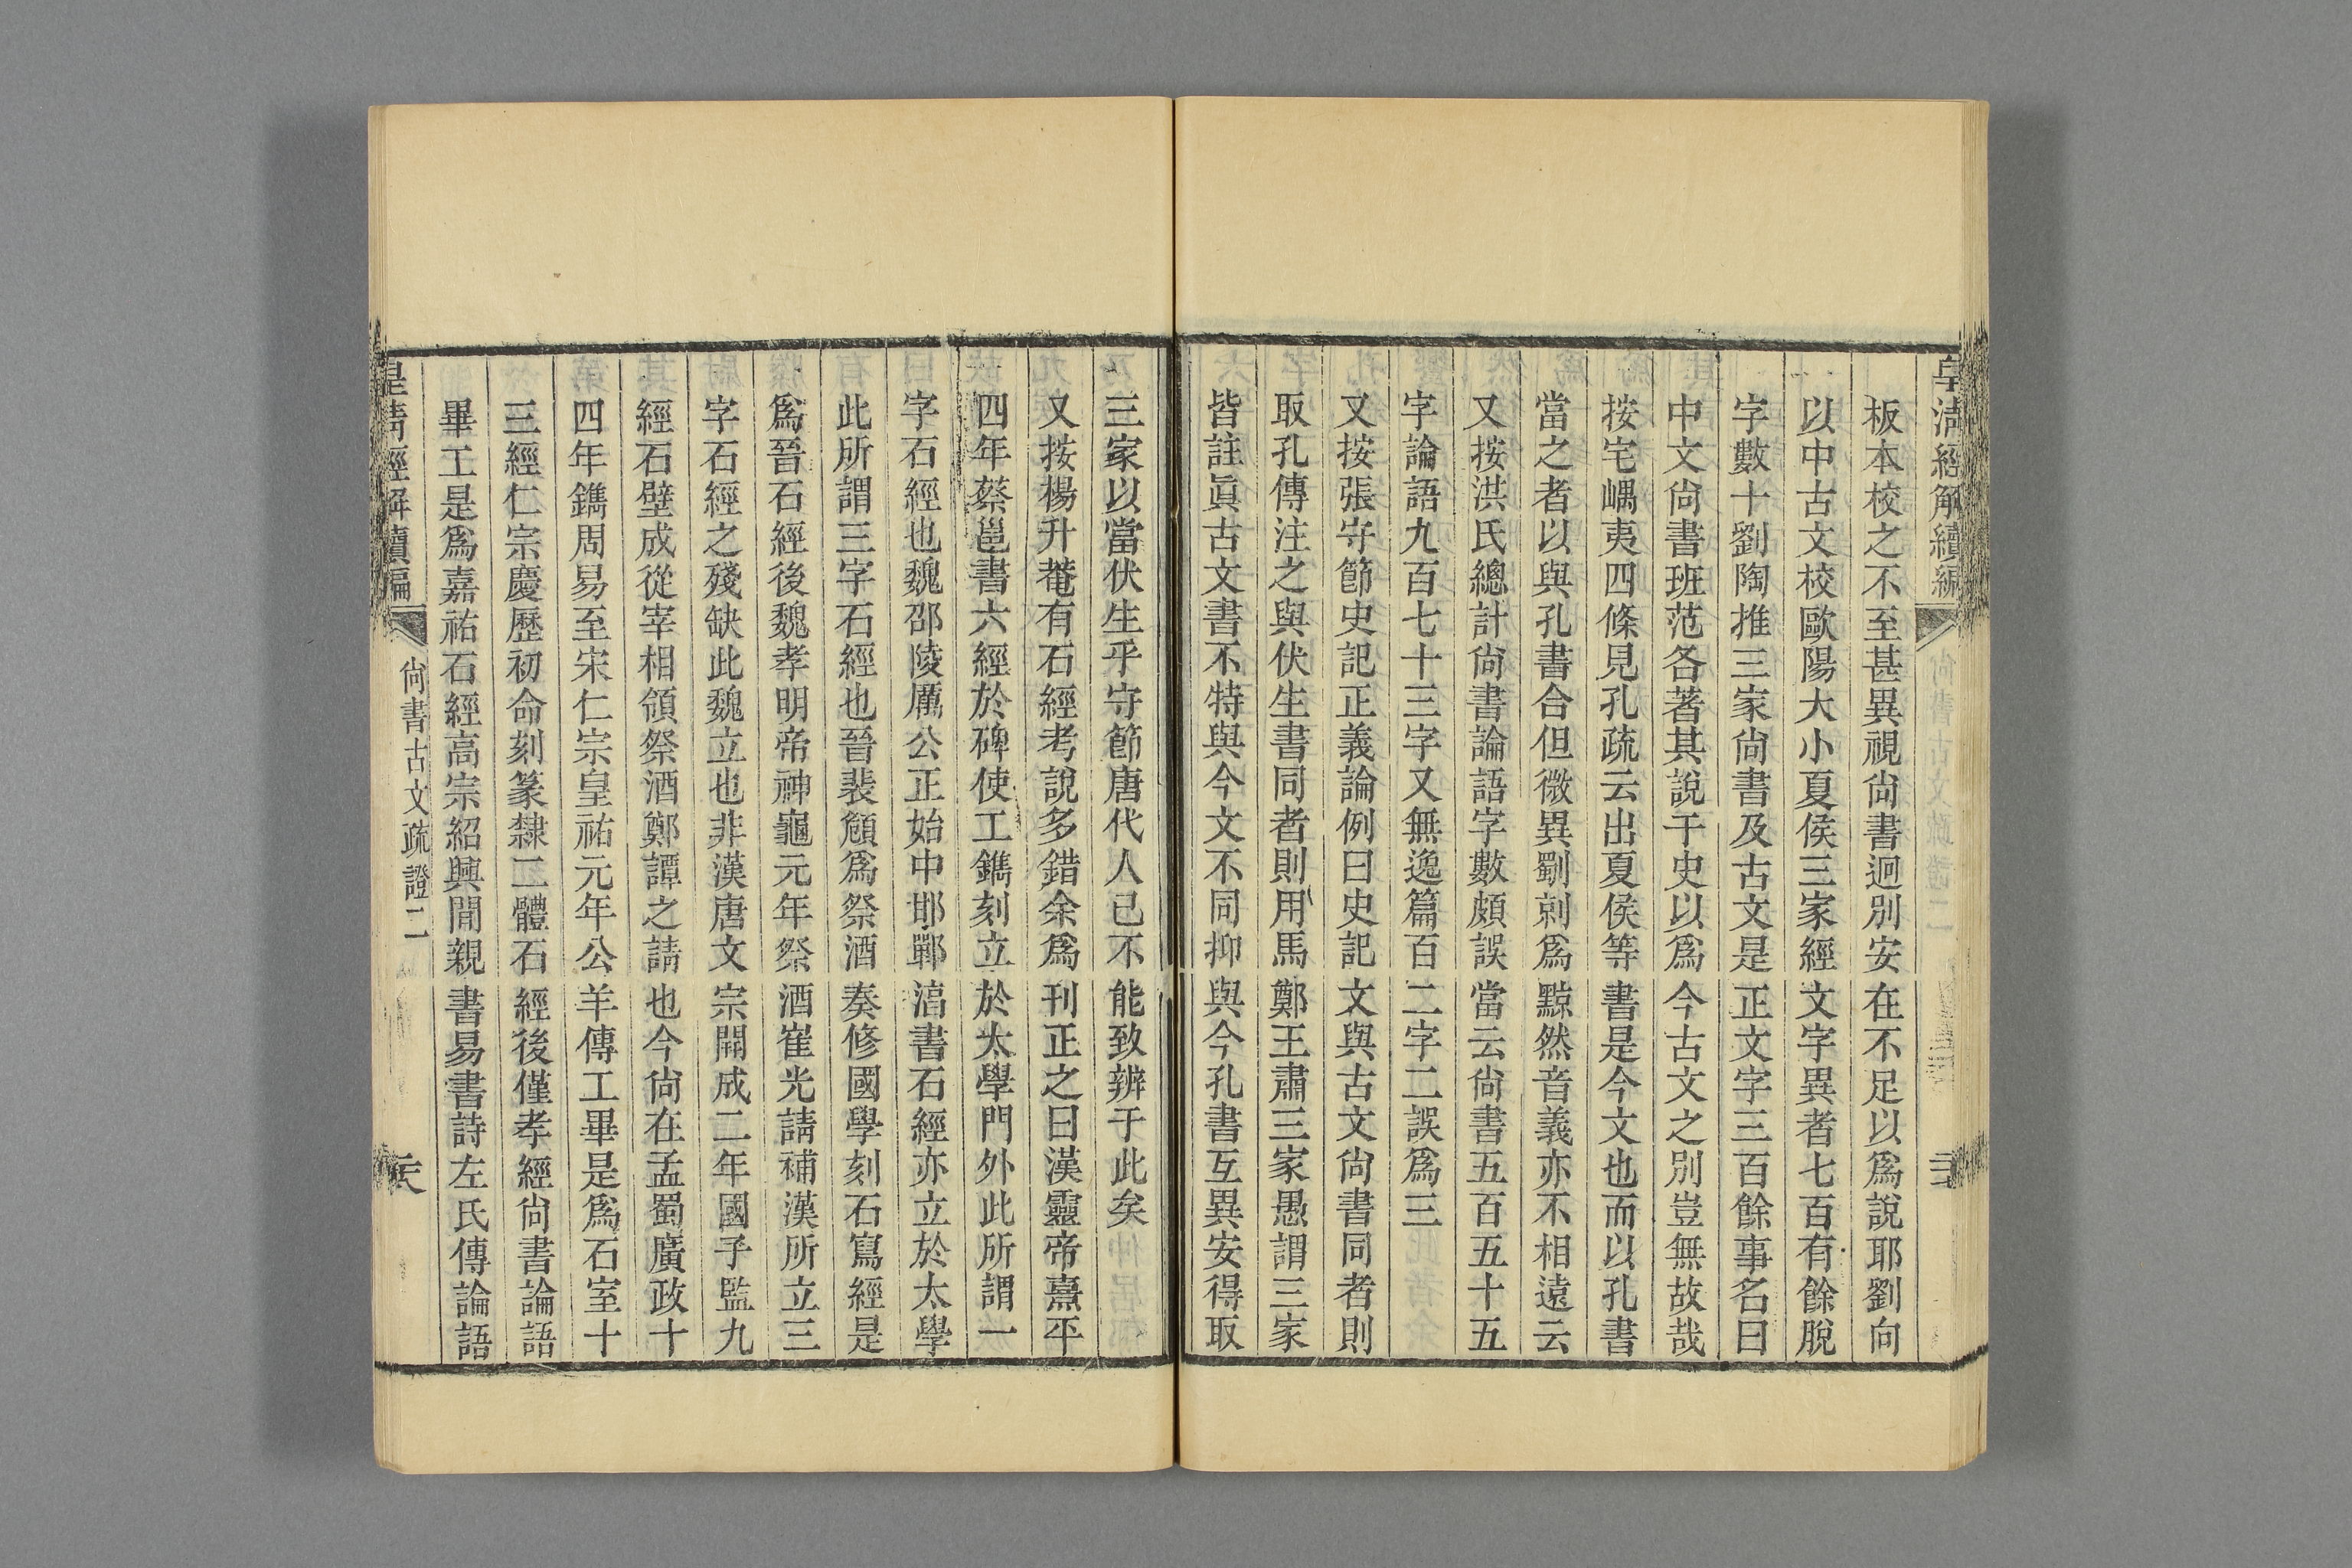 皇清經解續編
板本校之不至甚異視尙書迥別安在不足以爲說耶劉向
以中古文校歐陽大小夏侯三家經文字異者七百有餘脫
字數十劉陶推三家尙書及古文是正文字三百餘事名曰
中文尙書班范各著其說于史以爲今古文之別豈無故哉
按宅嵎夷四條見孔疏云出夏侯等書是今文也而以孔書
當之者以與孔書合但微異劅剠爲黥然音義亦不相遠云
又按洪氏總計尙書論語字數頗誤當云尙書五百五十五
字論語九百七十三字又無逸篇百二字二誤爲三
又按張守節史記正義論例曰史記文與古文尙書同者則
取孔傳注之與伏生書同者則用馬鄭王肅三家愚謂三家
皆註眞古文書不特與今文不同抑與今孔書互異安得取
三家以當伏生乎守節唐代人已不能致辨于此矣
又按楊升菴有石經考說多錯余爲刊正之曰漢靈帝熹平
四年蔡邕書六經於碑使工鐫刻立於太學門外此所謂一
字石經也魏邵陵厲公正始中邯鄲湻書石經亦立於太學
此所謂三字石經也晉裴頠爲祭酒奏修國學刻石寫經是
爲晉石經後魏孝明帝神龜元年祭酒崔光請補漢所立三
字石經之殘缺此魏立也非漢唐文宗開成二年國子監九
經石壁成從宰相領祭酒鄭譚之請也今尙在孟蜀廣政十
四年鐫周易至宋仁宗皇祐元年公羊傳工畢是爲石室十
三經仁宗慶歷初命刻篆隸二體石經後僅孝經尙書論語
畢工是爲嘉祐石經高宗紹興閒親書易書詩左氏傳論語
皇清經解續編
尙書古文疏證二